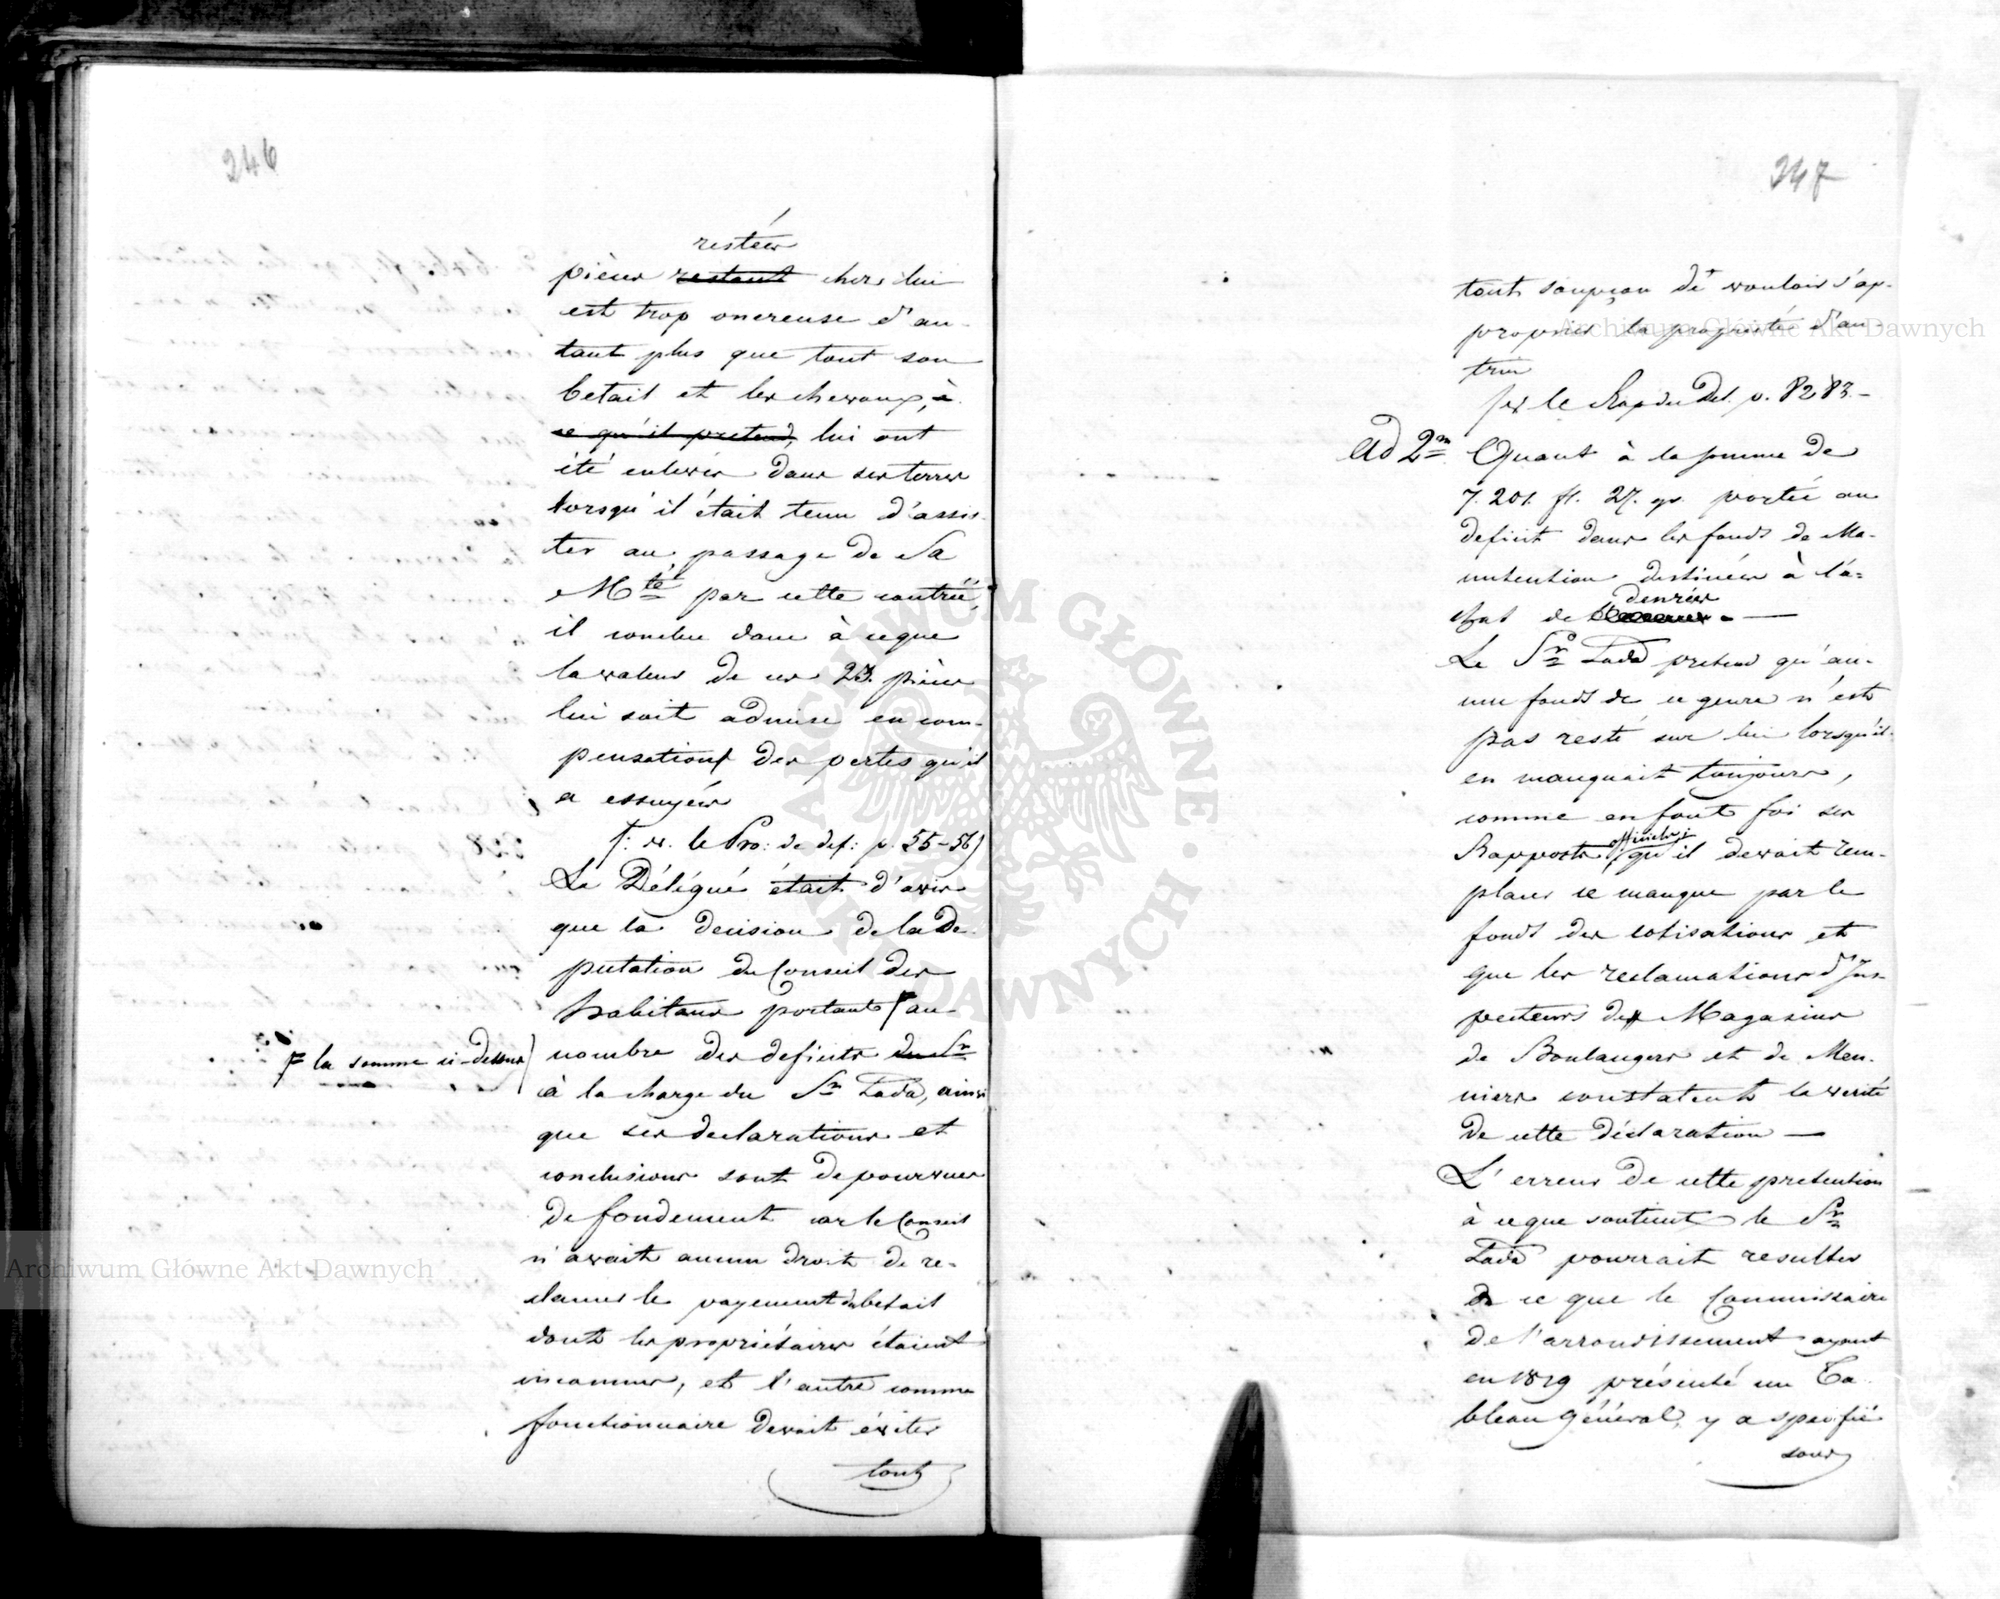 246
restées
pièces restant chez lui
est trop onereuse d'au-
tant plus que tout son
betail et les chevaux, à
ce qu'il pretend, lui ont
été enlevés dans ses terres
lorsqu'il était tenu d'assis-
ter au passage de Sa
Mté par cette contrée,
il conclue donc à ceque
la valeur de ces 23. pièces
lui soit admise en com-
pensation des pertes qu'il
a essuyées
(: v. le Pro: de def: p. 55-56)
Le Délégué était d'avis
que la decision de la De-
putation du Conseil des
habitans portant au
la somme ci-dessus
nombre des deficits du Sr
à la charge du Sr Zada, ainsi
que ses declarations et
conclusions sont depourvues
de fondement car le Conseil
n'avait aucun droit de re-
clamer le payement du betail
dont les propriétaires étaient
inconnus, et l'autre comme
fonctionnaire devait éviter
tout
247
tout soupçon de vouloir s'ap-
proprier la propriété d'au-
trui
le Rap du Del. p. 82 83.-
Ad 2m Quant à la somme de
7.201. fl. 27. gr. portée au
deficit dans les fonds de Ma-
nutention destinées à l'a-
denrées
chat de
Le Sr Zada pretend qu'au-
cun fonds de ce genre n'est
pas resté sur lui lorsqu'il
en manquait toujours,
comme en font foi ses
officiels
Rapports, qu'il devait rem-
placer ce manque par le
fonds des cotisations et
que les reclamations d'Ins-
pecteurs des Magasins
de Boulangers et de Meu-
niers constatent la verité
de cette déclaration —
L'erreur de cette pretention
à ceque soutient le Sr
Zada pourrait resulter
de ce que le Commissaire
de l'arrondissement ayant
en 1819 présenté un Ta-
bleau général, y a specifié
sous
Archiwum Główne Akt Dawnych
Archiwum Główne Akt Dawnych
ARCHIWUM GŁÓWNE AKT DAWNYCH